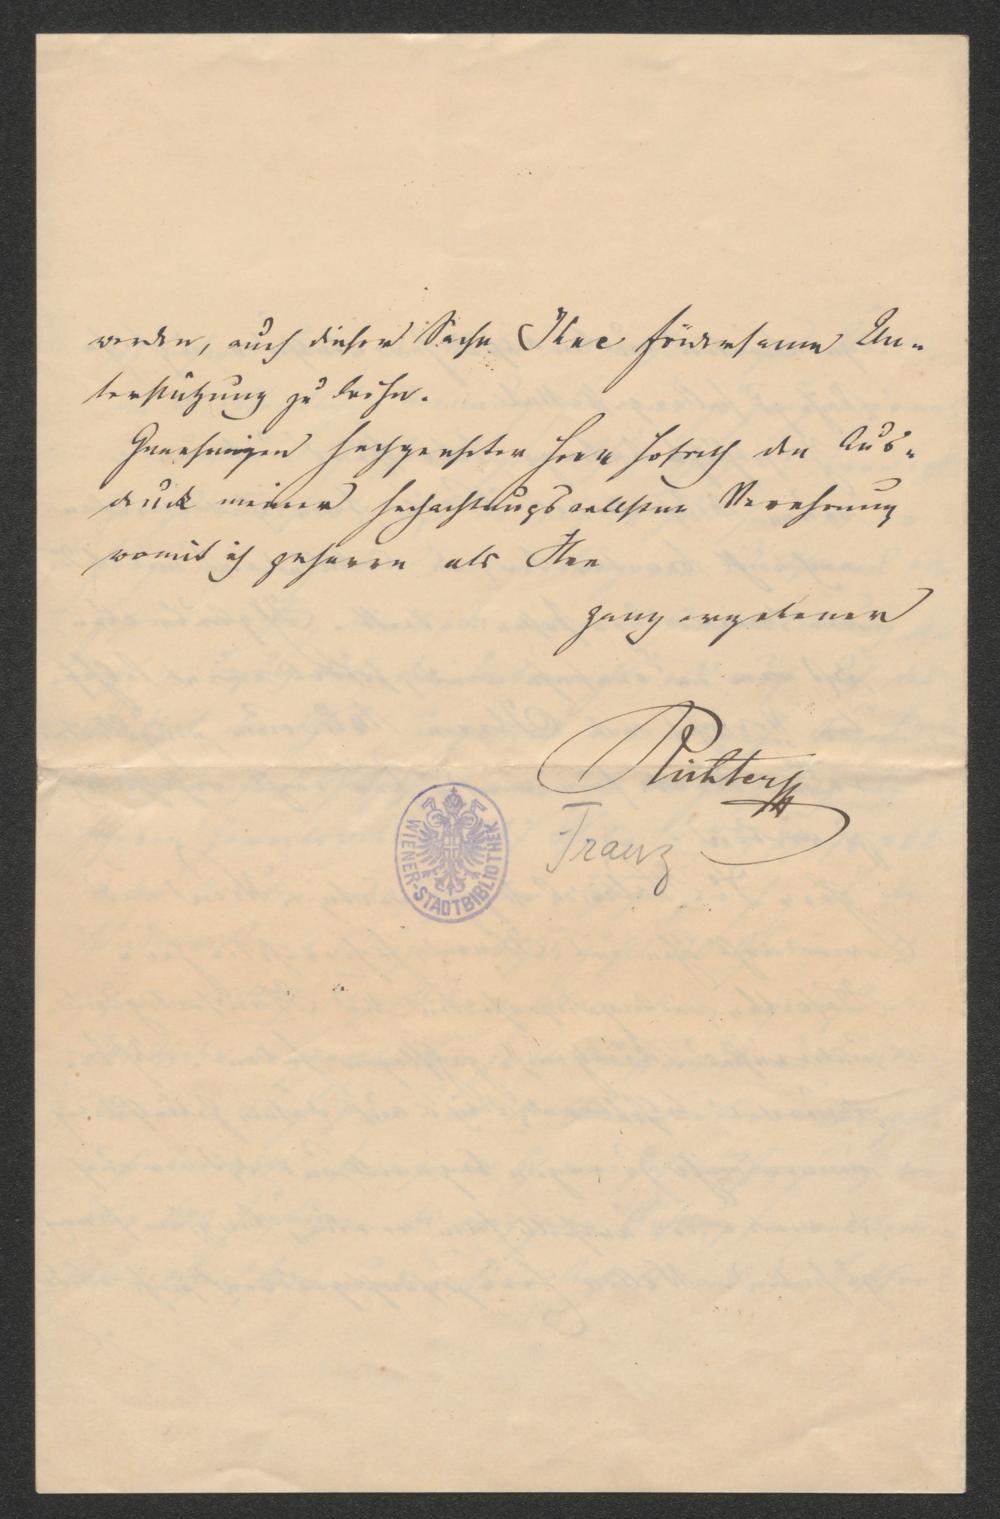 werden, auch dieser Sache Ihre fördersame Un-
terstützung zu leihen.
Genehmigen hochgeehrter Herr Hofrath den Aus-
druck meiner hochachtungsvollsten Verehrung
womit ich geharre als Ihr
ganz ergebener
Richter
Franz
WIENER-STADTBIBLIOTHEK